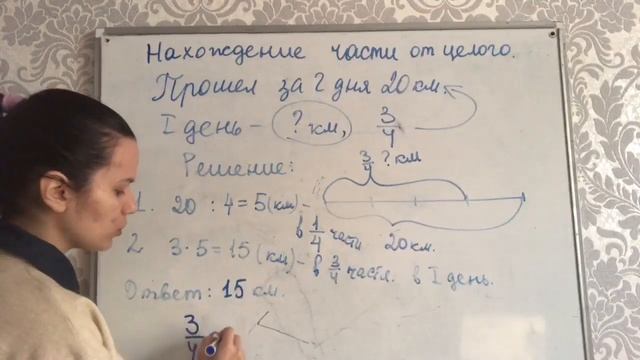 Нахождение части от целого.
Прошел за 2 дня 20 км.
I день - ? км, 3/4
Решение:
3/4 ? км
1. 20 : 4 = 5 (км) - в 1/4 части
20 км.
2. 3·5 = 15 (км) - в 3/4 части. в I день.
Ответ: 15 км.
3/4